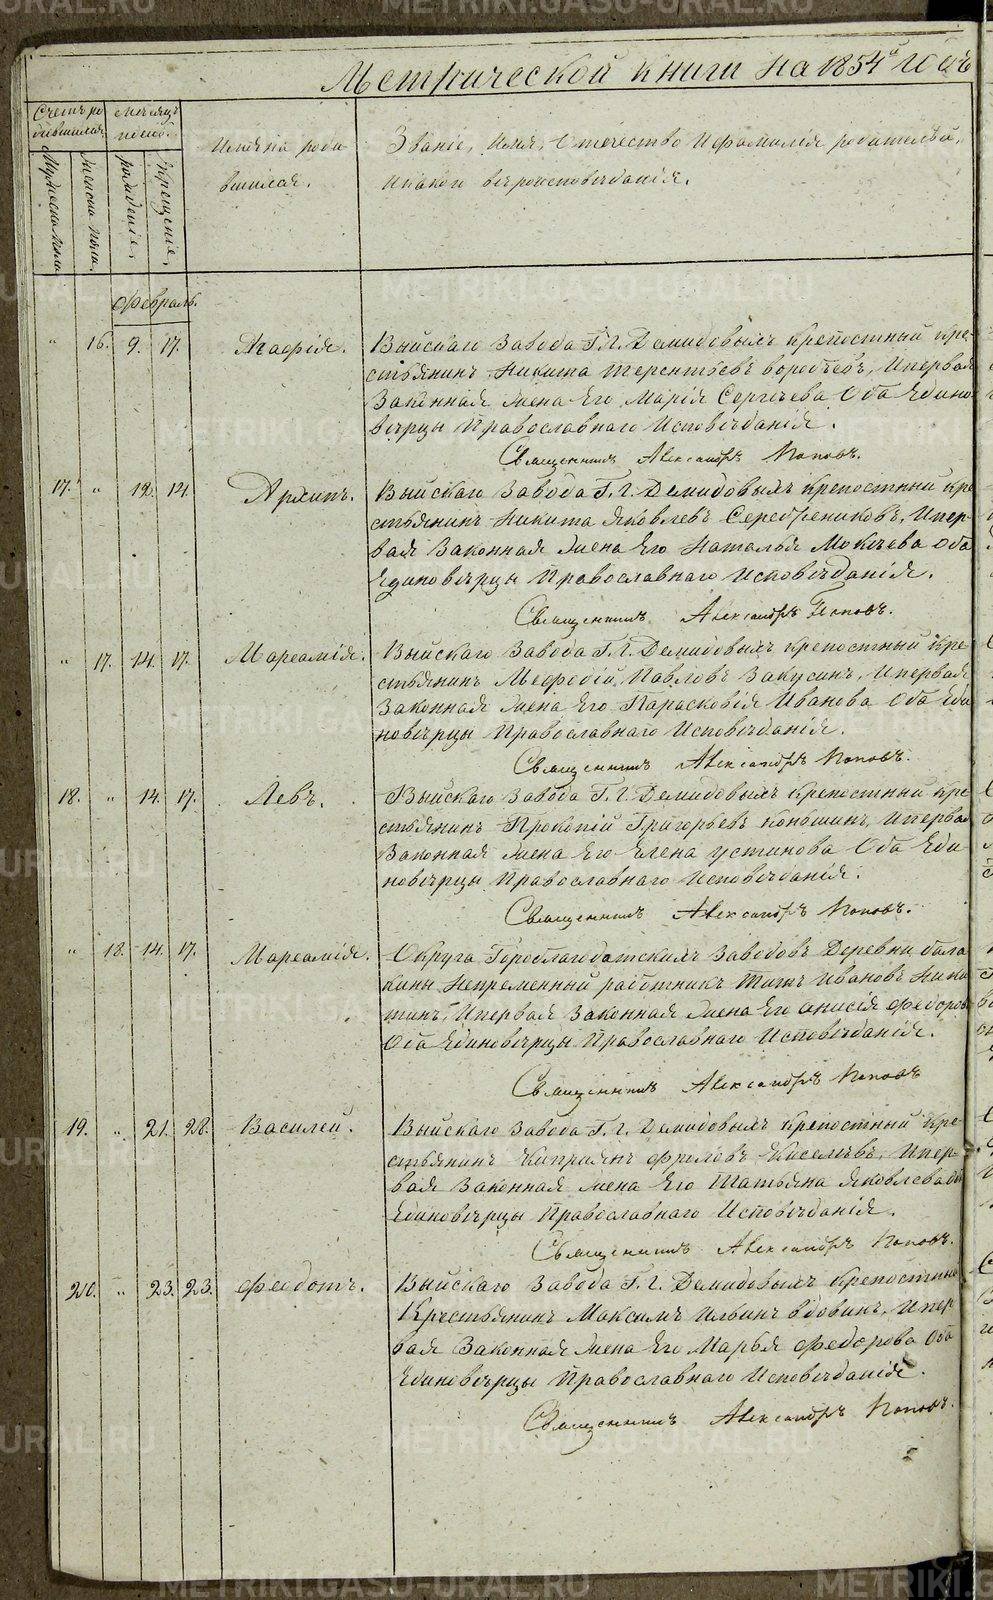 Метрической книги на 1854й годъ
Счетъ ро
дившихся
Мѣсяцъ
и день.
Мужеска пола.
Женска пола.
рожденіе,
крещеніе,
Имена роди
вшихся.
Званіе, Имя, Отечество и фамилія родителей,
и какого вѣроисповѣданія.
Февраль.
" 16. 9. 17. Агафія. Выйскаго Завода Г.г. Демидовыхъ крѣпостный кре
стьянинъ Никита Терентьевъ воробьевъ, и первая
Законная жена Его Марія Сергѣева Оба Едино
вѣрцы Православнаго Исповѣданія.
Священникъ Александръ Поповъ.
17. " 12. 14. Архипъ. Выйскаго Завода Г.г. Демидовыхъ крѣпостный кре
стьянинъ Никита Яковлевъ Серебрениковъ, и пер-
вая Законная жена Его Наталья Мокѣева Оба
Единовѣрцы Православнаго Исповѣданія.
Священникъ Александръ Поповъ.
" 17. 14. 17. Мареамія. Выйскаго Завода Г.г. Демидовыхъ крѣпостный кре
стьянинъ Меѳодій Павловъ Закусинъ, и первая
Законная жена Его Парасковія Иванова Оба Еди
новѣрцы Православнаго Исповѣданія.
Священникъ Александръ Поповъ.
18. " 14. 17. Левъ. Выйскаго Завода Г.г. Демидовыхъ крѣпостный кре
стьянинъ Прокопій Григорьевъ Коношинъ, и первая
Законная жена Его Елена Устинова Оба Еди
новѣрцы Православнаго Исповѣданія.
Священникъ Александръ Поповъ.
" 18. 14. 17. Мареамія. Округа Гороблагодатскихъ Заводовъ Деревни бала
кины Непременный работникъ Титъ Ивановъ Ники
тинъ, и первая Законная жена Его Анисія Федорова
Оба Единовѣрцы Православнаго Исповѣданія.
Священникъ Александръ Поповъ
19. " 21. 28. Василей. Выйскаго Завода Г.г. Демидовыхъ крѣпостный кре
стьянинъ Кипріянъ Киселевъ, и пер-
вая Законная жена Его Татьяна Яковлева
Единовѣрцы Православнаго Исповѣданія.
Священникъ Александръ Поповъ.
20. " 23. 23. Федотъ. Выйскаго Завода Г.г. Демидовыхъ крѣпостный
Крестьянинъ Максимъ Ильинъ вдовинъ, и пер
вая Законная жена Его Марья Федорова Оба
Единовѣрцы Православнаго Исповѣданія.
Священникъ Александръ Поповъ.
METRIKI.GASO-URAL.RU